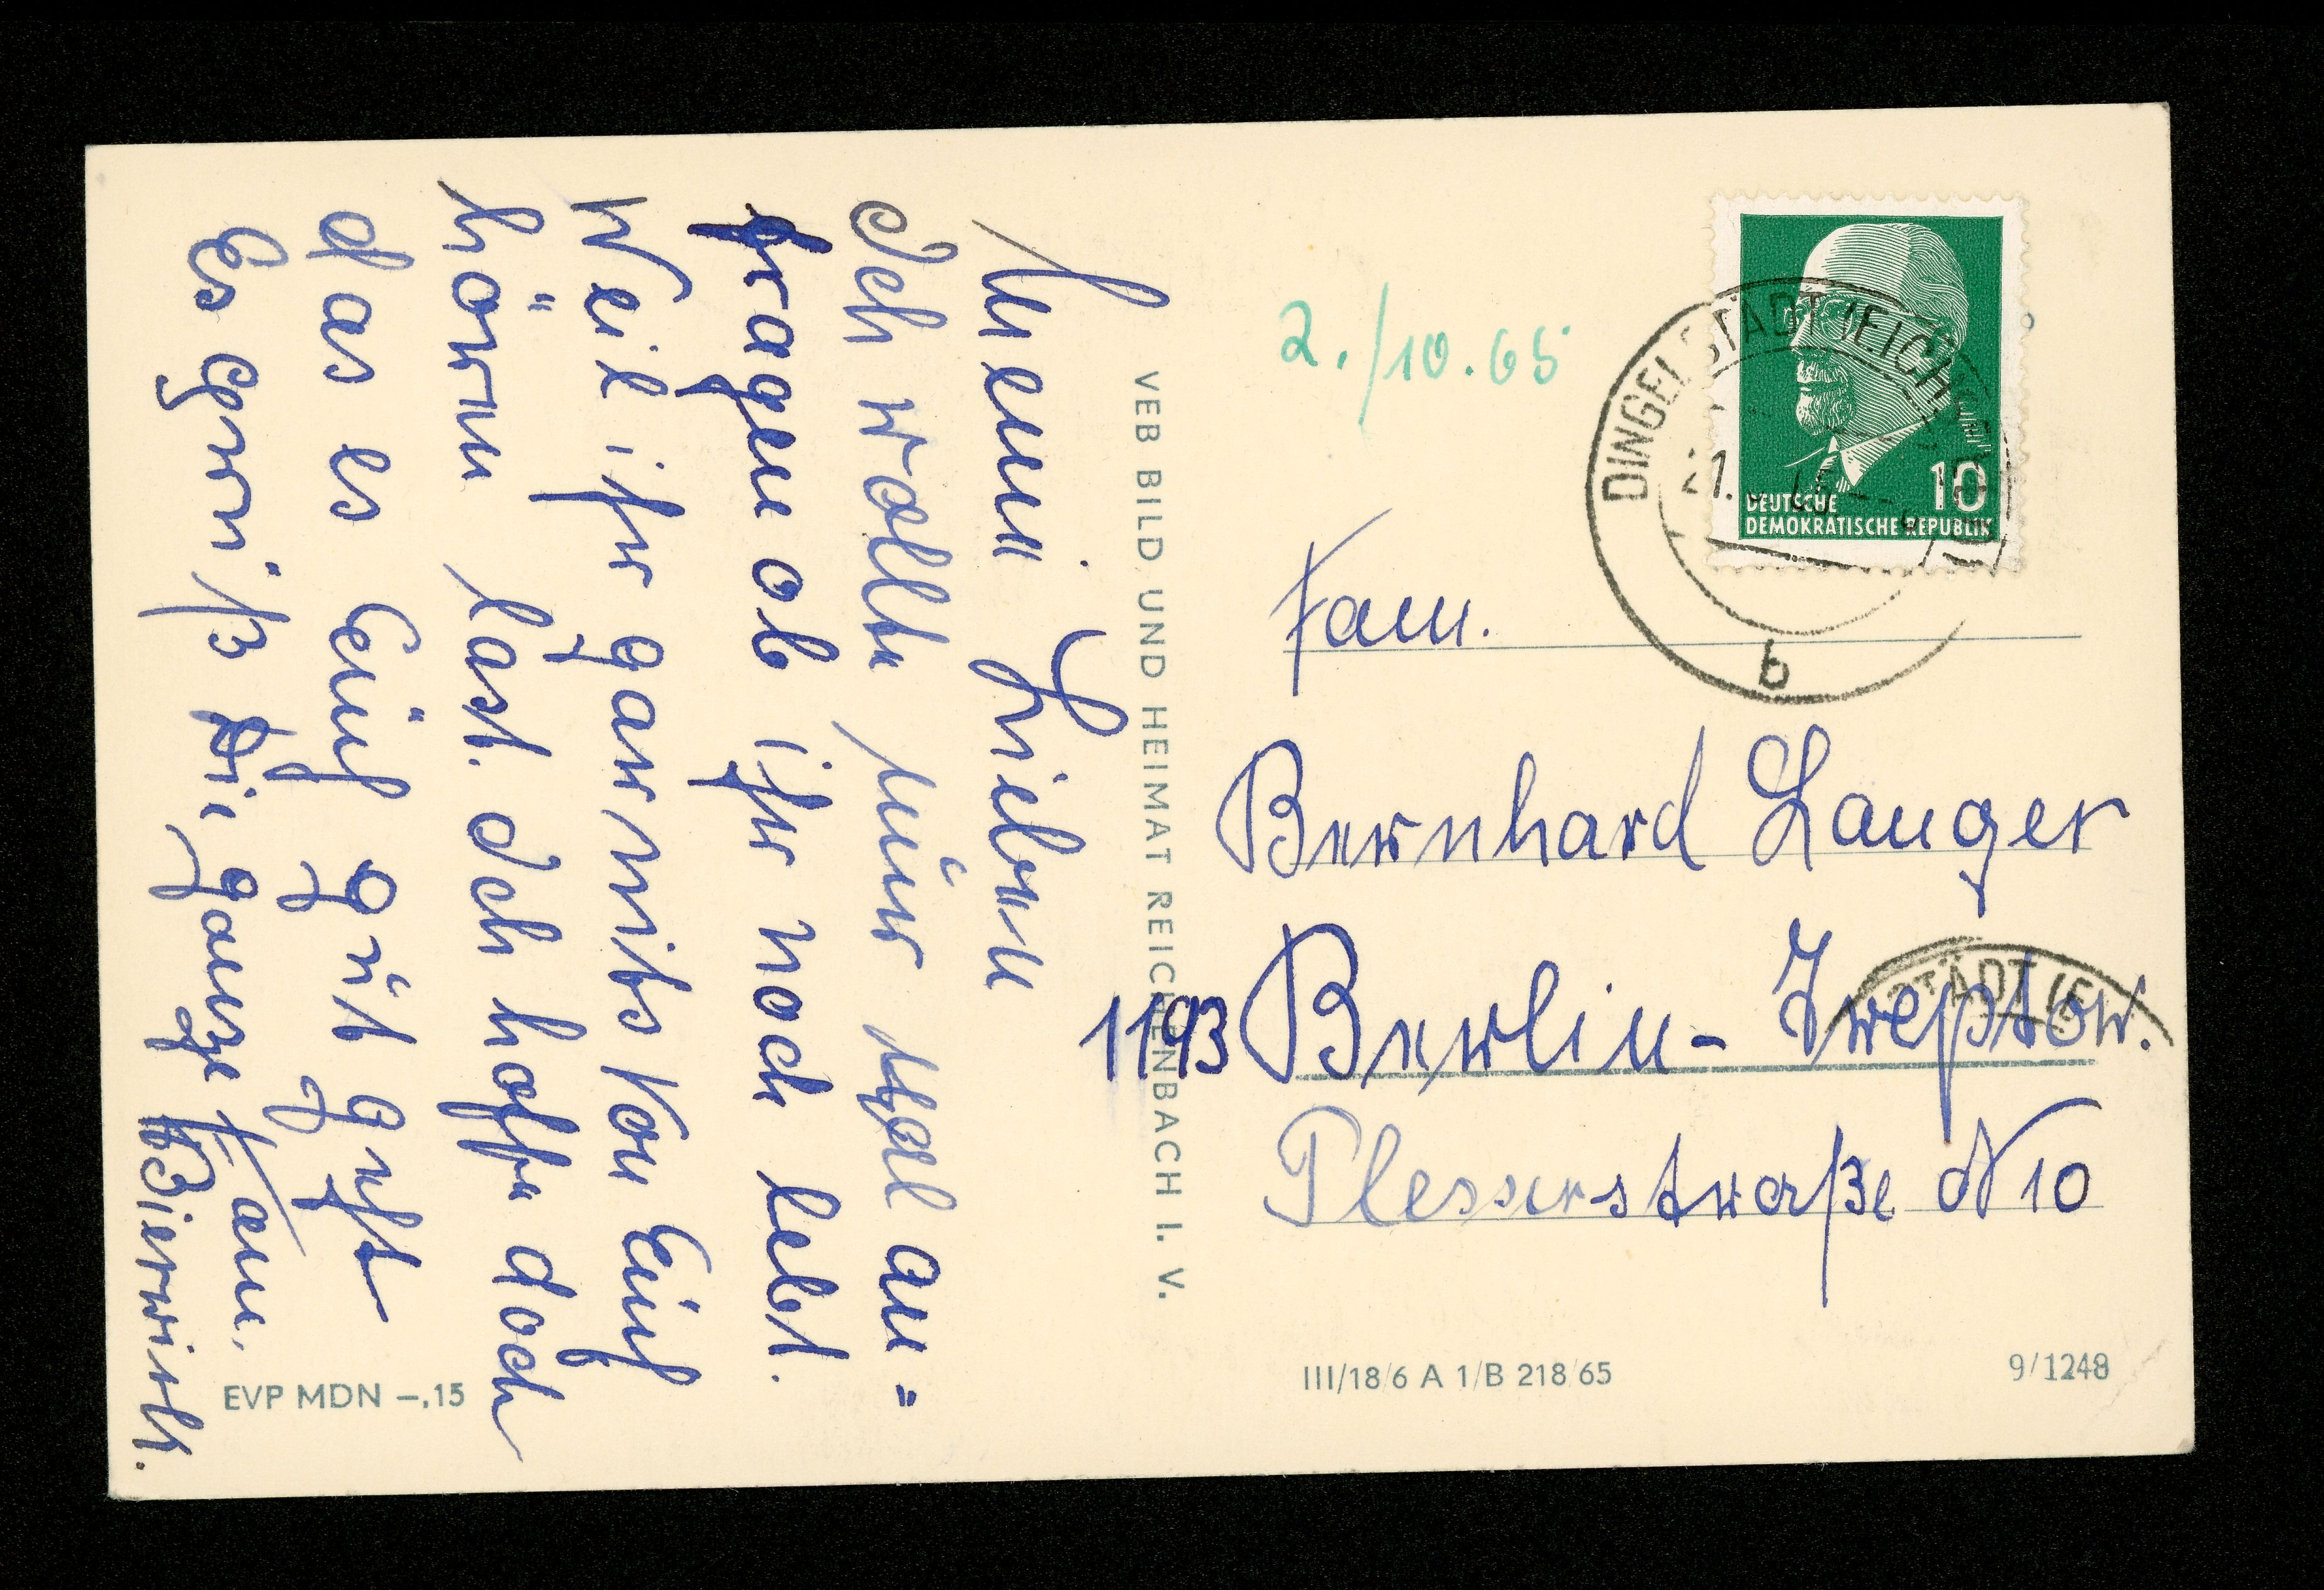 Meine Lieben
Ich wollte nur mal an=
fragen ob ihr noch lebt.
Weil ihr gar nits von Euch
hören läst. Ich hoffe doch
das es Euch gut geht
Es grüßt Die ganze Fam.
Bierwirth.
VEB BILD UND HEIMAT REICHENBACH I. V.
EVP MDN –.15
2./10.65
DINGELSTÄDT (EICHSFELD)
b
10
DEUTSCHE
DEMOKRATISCHE REPUBLIK
Fam.
Bernhard Langer
1193 Berlin-Treptow.
STÄDT (EI
Plesserstraße N 10
III/18/6 A 1/B 218/65
9/1248